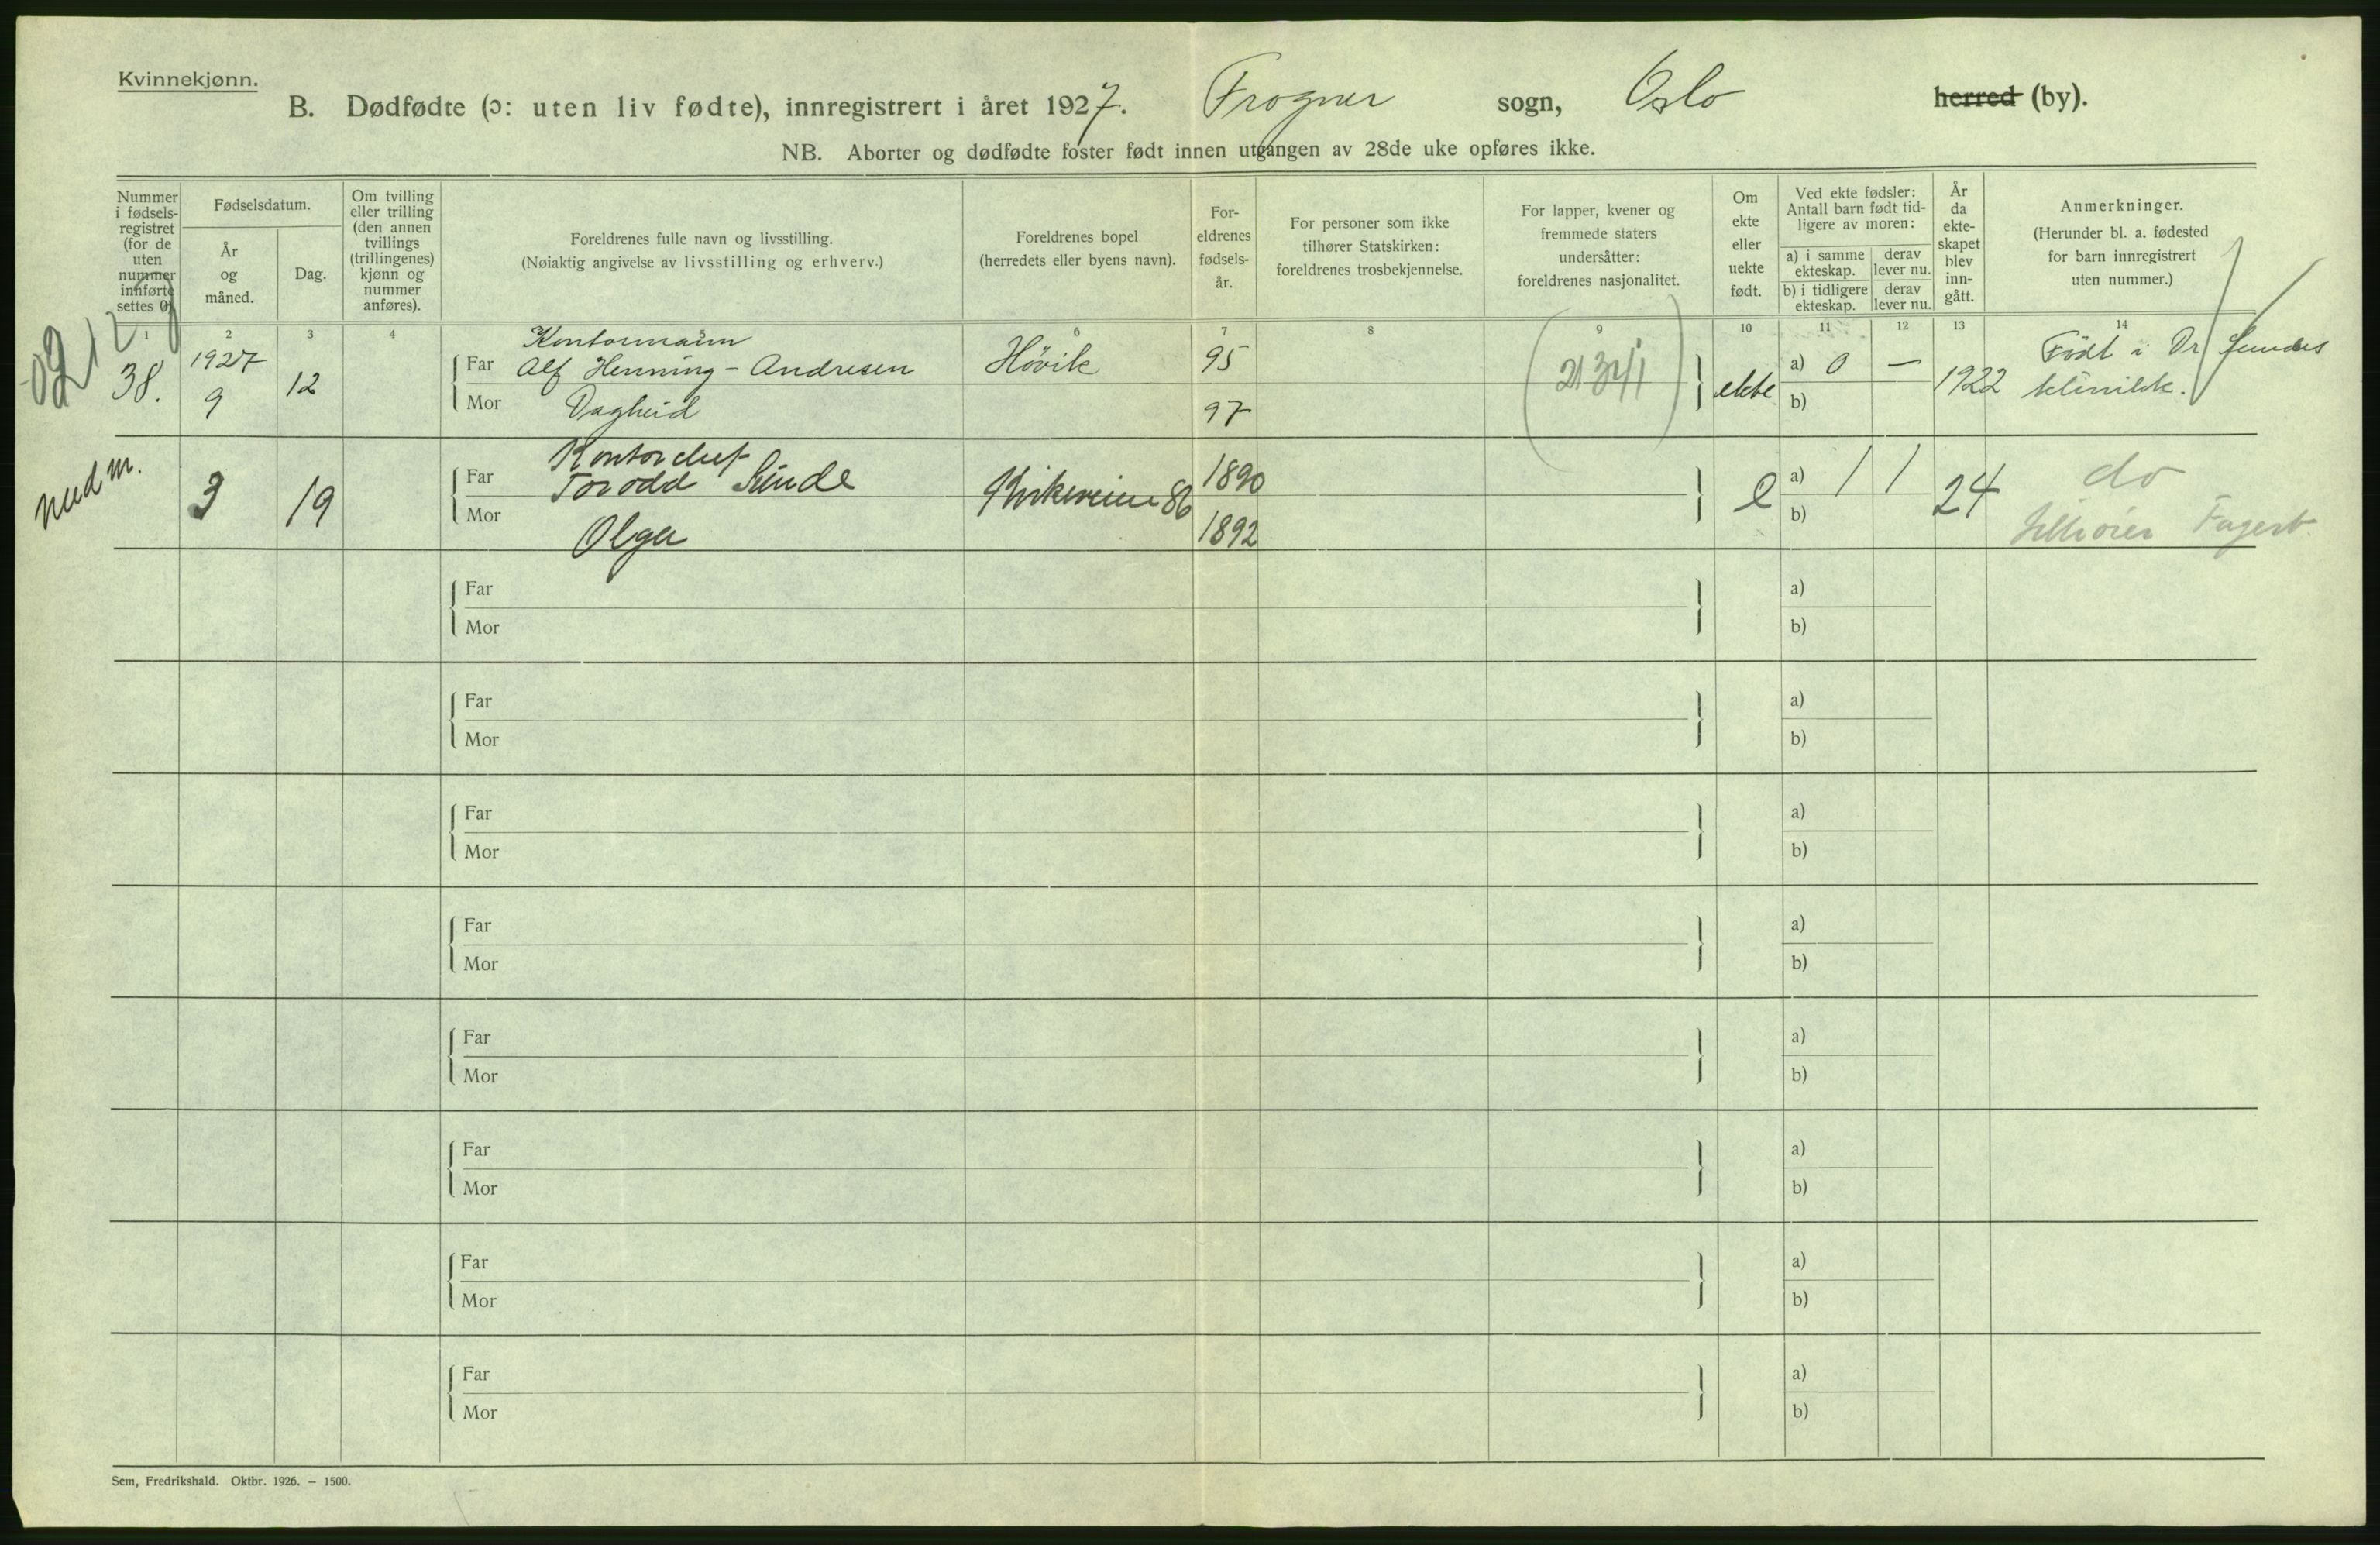 Kvinnekjønn.
B. Dødfødte (ɔ: uten liv fødte), innregistrert i året 1927. Frogner sogn, Oslo herred (by).
NB. Aborter og dødfødte foster født innen utgangen av 28de uke opføres ikke.
Nummer i fødsels-registret (for de uten nummer innførte settes 0)
Fødselsdatum.
År og måned.
Dag.
Om tvilling eller trilling (den annen tvillings (trillingenes) kjønn og nummer anføres).
Foreldrenes fulle navn og livsstilling.
(Nøiaktig angivelse av livsstilling og erhverv.)
Foreldrenes bopel
(herredets eller byens navn).
For-eldrenes fødsels-år.
For personer som ikke tilhører Statskirken: foreldrenes trosbekjennelse.
For lapper, kvener og fremmede staters undersåtter: foreldrenes nasjonalitet.
Om ekte eller uekte født.
Ved ekte fødsler: Antall barn født tid-ligere av moren:
a) i samme ekteskap.
derav lever nu.
b) i tidligere ekteskap.
derav lever nu.
År da ekte-skapet blev inn-gått.
Anmerkninger.
(Herunder bl. a. fødested for barn innregistrert uten nummer.)
1 2 3 4 6 7 8 9 10 11 12 13 14
38. 1927 9 12
Kontormann
Far Alf Henning-Andresen Høvik 95
Mor Dagheid 97
ekte a) 0 — 1922 Født i Dr
b) klinikk.
3 19
Kontorchef
Far Torodd Sunde Kirkeveien 86 1890
Mor Olga 1892
e a) 1 1 24 do
b)
Far a)
Mor b)
Far a)
Mor b)
Far a)
Mor b)
Far a)
Mor b)
Far a)
Mor b)
Far a)
Mor b)
Far a)
Mor b)
Far a)
Mor b)
Sem, Fredrikshald. Oktbr. 1926. — 1500.